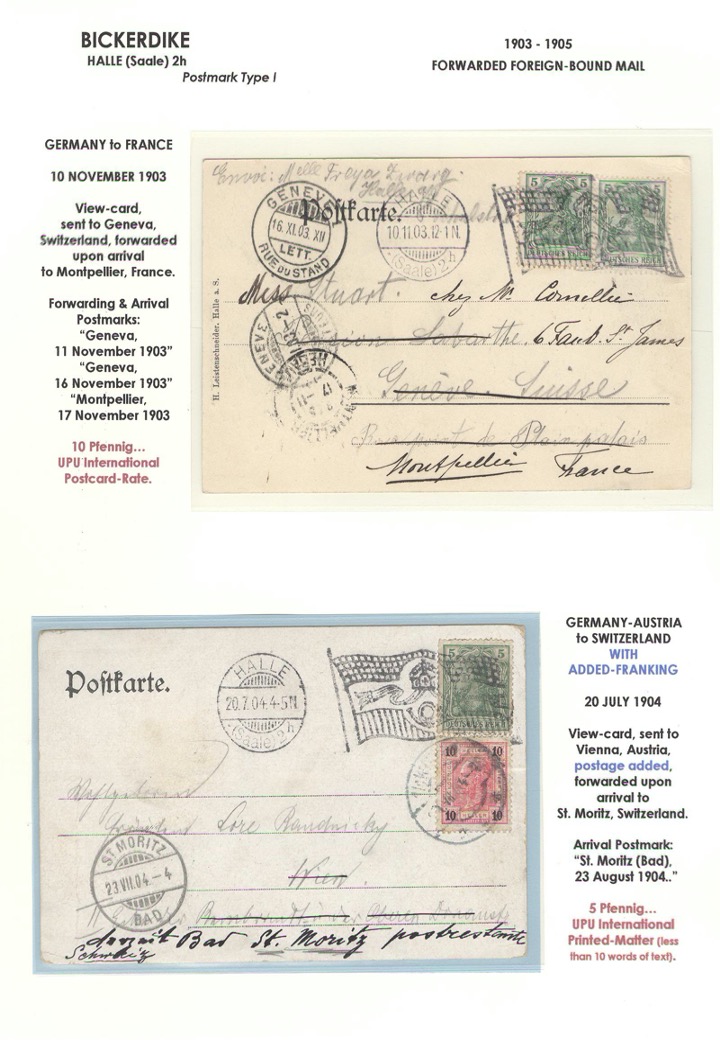 BICKERDIKE
HALLE (Saale) 2h
Postmark Type I
1903 - 1905
FORWARDED FOREIGN-BOUND MAIL
GERMANY to FRANCE
10 NOVEMBER 1903
View-card,
sent to Geneva,
Switzerland, forwarded
upon arrival
to Montpellier, France.
Forwarding & Arrival
Postmarks:
"Geneva,
11 November 1903"
"Geneva,
16 November 1903"
"Montpellier,
17 November 1903
10 Pfennig...
UPU International
Postcard-Rate.
Envoi: Melle Freya
Halle
Postkarte.
GENEVE 1
16. XI. 03. XII
LETT.
RUE DU STAND
HALLE
10.11.03.12-1N.
(Saale) 2h
5 5
5
DEUTSCHES REICH
Miss Stuart. chez Mr Cornellier
Pension Labarthe. 6 Faub. St James
Genève. Suisse
Rond point de Plain palais
Montpellier France
GENEVE
MONTPELLIER
17
H. Leistenschneider. Halle a. S.
GERMANY-AUSTRIA
to SWITZERLAND
WITH
ADDED-FRANKING
20 JULY 1904
View-card, sent to
Vienna, Austria,
postage added,
forwarded upon
arrival to
St. Moritz, Switzerland.
Arrival Postmark:
"St. Moritz (Bad),
23 August 1904.."
5 Pfennig...
UPU International
Printed-Matter (less
than 10 words of text).
Postkarte.
HALLE
20.7.04.4-5N
(Saale) 2h
5 5
DEUTSCHES REICH
10 10
10 10
Wohlgeboren
Lore
Wien
ST. MORITZ
23.VII.04.–4
BAD
derzeit Bad St. Moritz postrestante
Schweiz